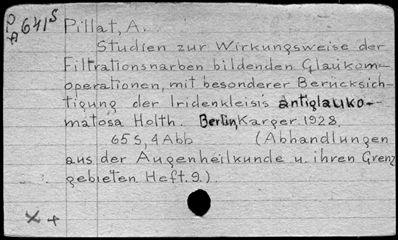 641S Pillat, A.
Studien zur Wirkungsweise der
Filtrationsnarben bildenden Glaukom-
operationen, mit besonderer Berücksich-
tigung der Iridenkleisis antiglauko-
matosa Holth. Berlin, Karger 1928.
65 S, 4 Abb (Abhandlungen
aus der Augenheilkunde u. ihren Grenz
gebieten. Heft. 9.)